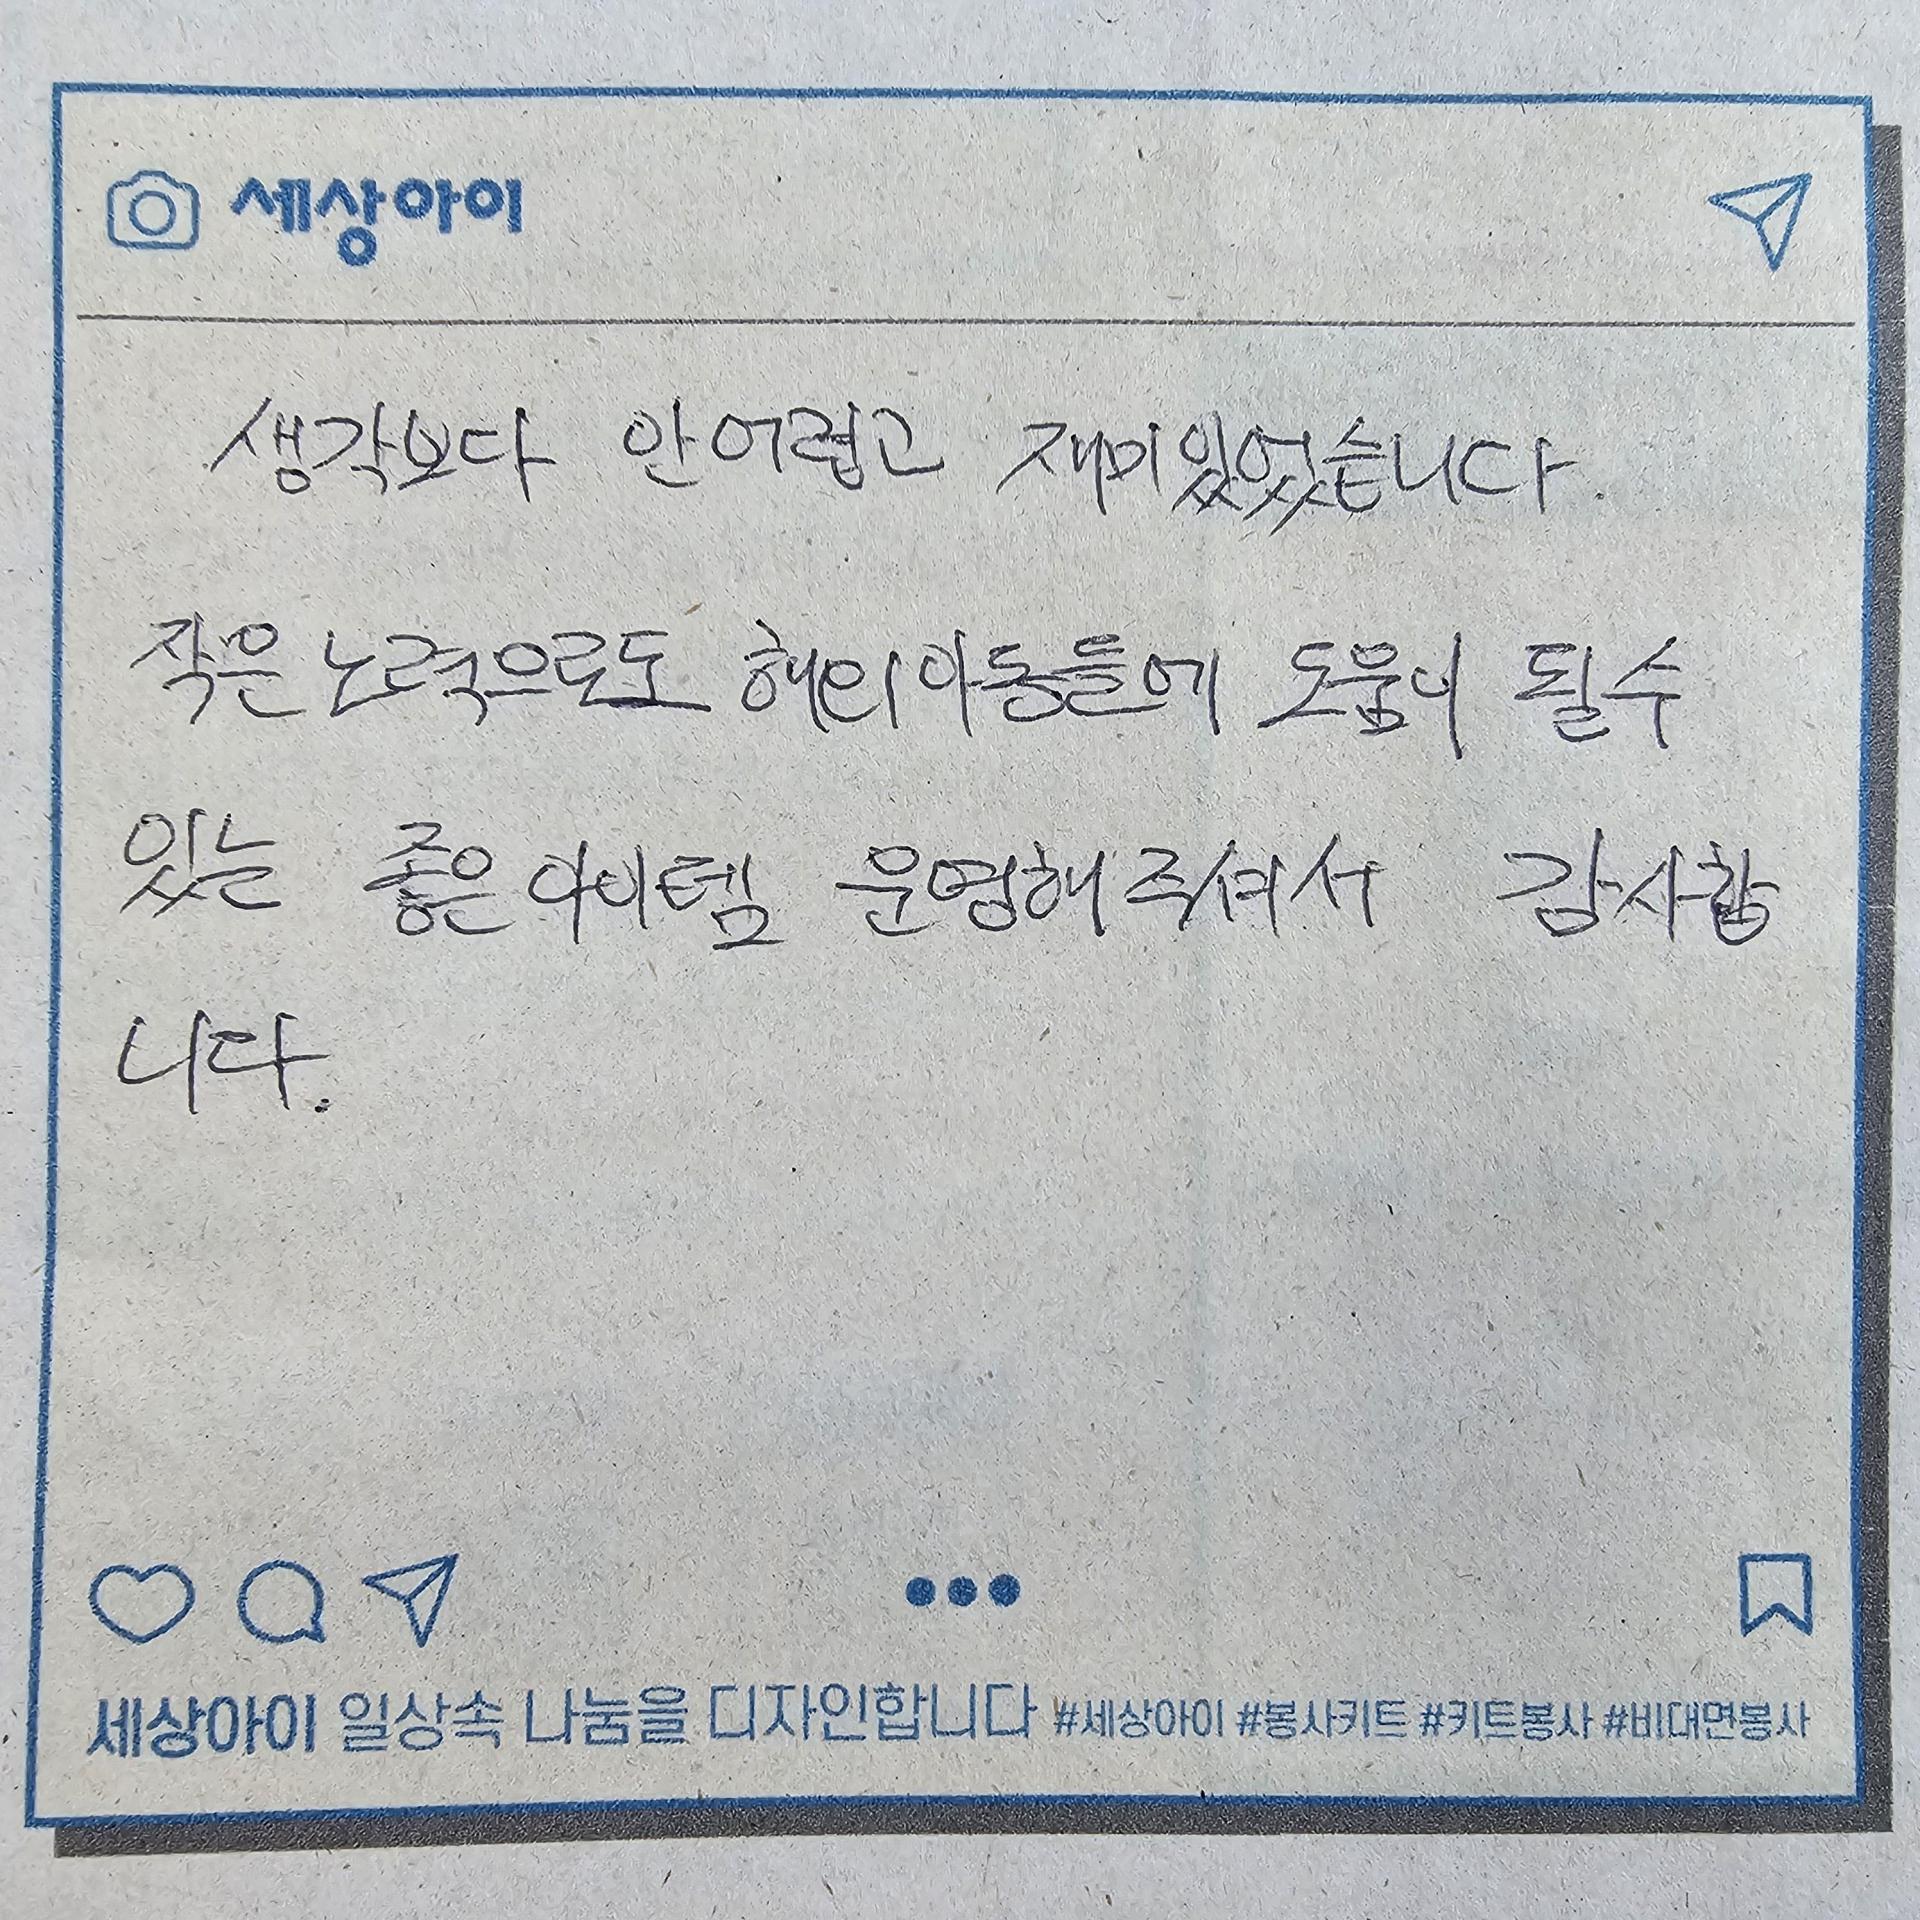 세상아이
생각보다 안어렵고 재미있었습니다.
작은 노력으로도 해외아동들에 도움이 될수
있는 좋은아이템 운영해주셔서 감사합
니다.
세상아이 일상속 나눔을 디자인합니다 #세상아이 #봉사키트 #키트봉사 #비대면봉사